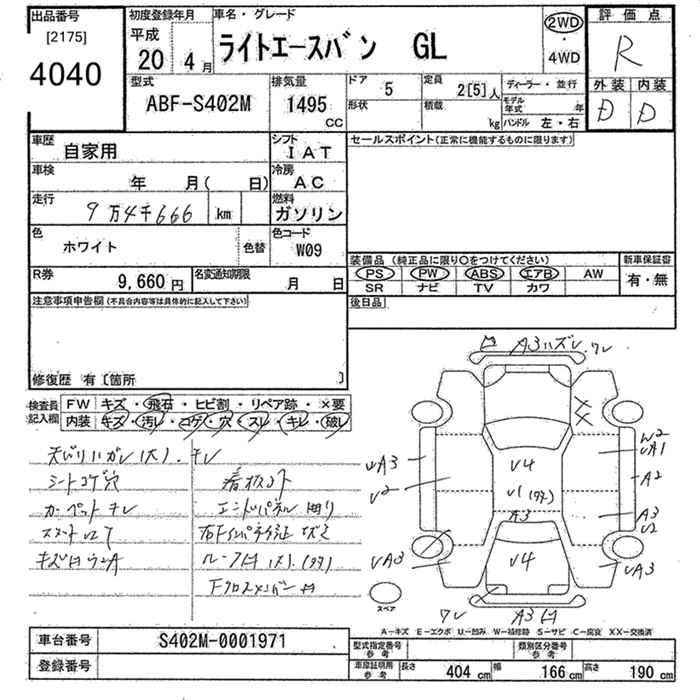 出品番号
[2175]
4040
初度登録年月
平成
20 4月
車名・グレード
ライトエースバン GL
2WD
・
4WD
評価点
R
外装 内装
D D
型式
ABF-S402M
排気量
1495
CC
ドア
5
形状
定員
2[5]人
積載
kg
ディーラー・並行
モデル年式 年
ハンドル 左・右
車歴
自家用
シフト
IAT
車検
年 月( 日)
冷房
AC
走行
9万4千666 km
燃料
ガソリン
色
ホワイト
色替
色コード
W09
R券
9,660円
名変通知期限
月 日
セールスポイント(正常に機能するものに限ります)
装備品 (純正品に限り○をつけてください)
PS PW ABS エアB AW
SR ナビ TV カワ
新車保証書
有・無
後日品
注意事項申告欄(不具合内容等は具体的に記入して下さい)
修復歴 有[箇所 ]
検査員記入欄
FW キズ・飛石・ヒビ割・リペア跡・×要
内装 キズ・汚レ・コゲ・穴・スレ・キレ・破レ
天バリハガレ(大).キレ
シートコゲ穴
カーペットキレ
エンドパネル曲り
A3ハズレ.ワレ
XX
W2
UA1
A2
A3
U2
UA3
UA3
U2
UA3
U4
U1
A3
U4
ワレ
スペア
A-キズ E-エクボ U-凹み W-補修跡 S-サビ C-腐食 XX-交換済
車台番号 S402M-0001971
登録番号
型式指定番号参考
類別区分番号参考
車庫証明用参考 長さ 404cm 幅 166cm 高さ 190cm